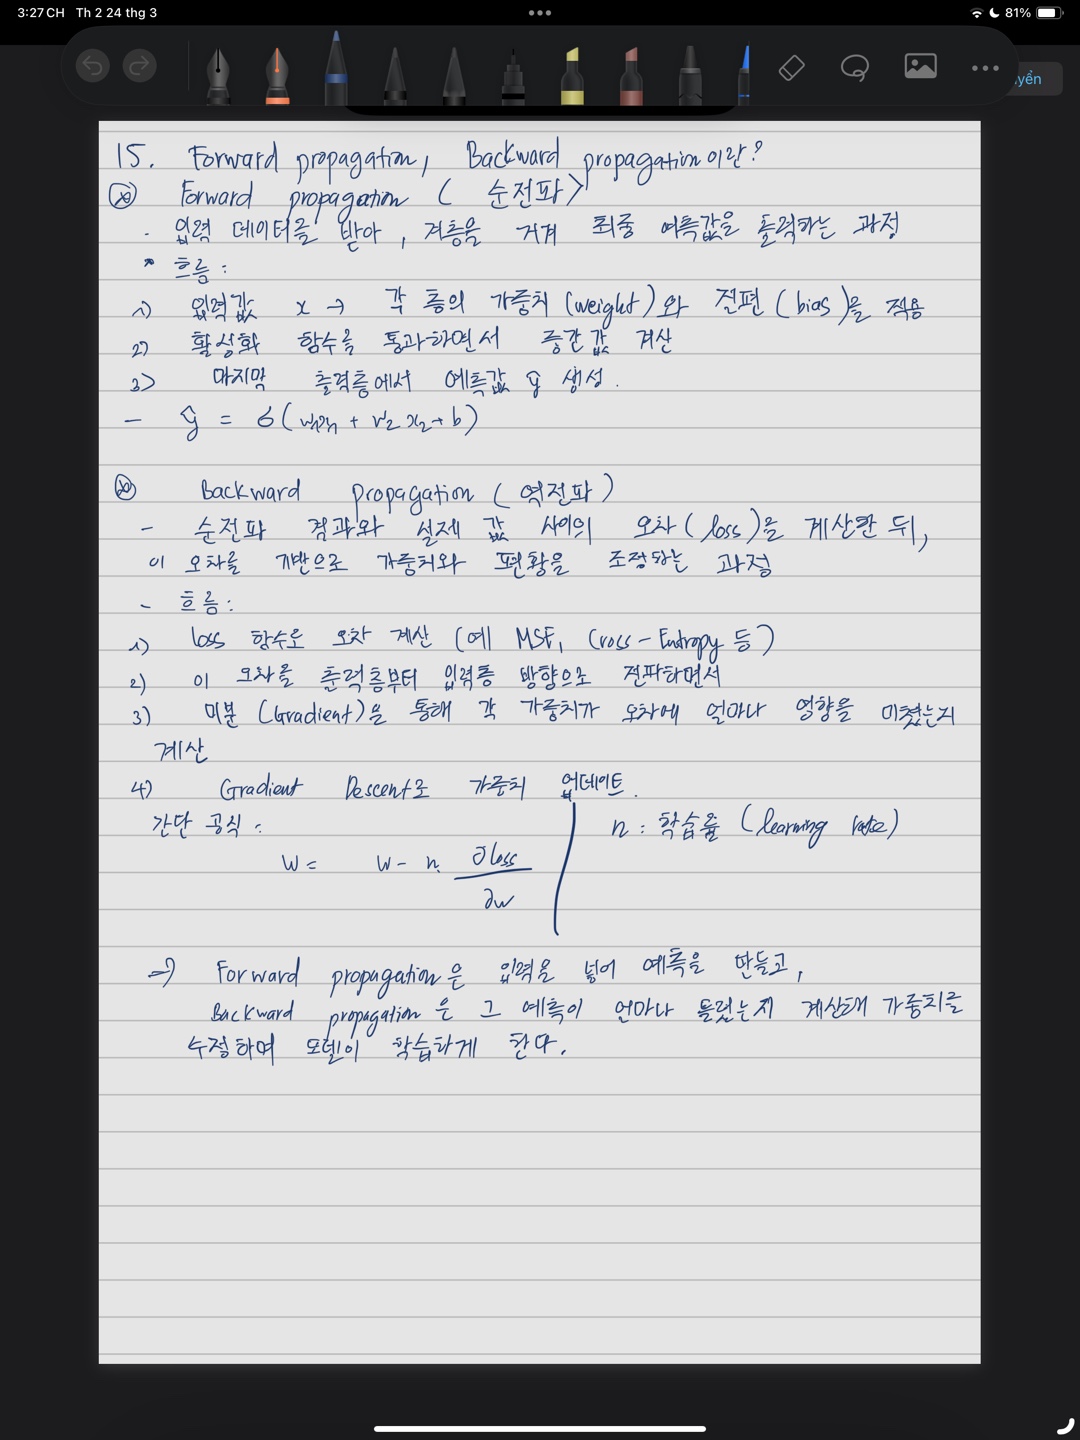 3:27 CH Th 2 24 thg 3
81%
yển
15. Forward propagation, Backward propagation이란?
Forward propagation (순전파)
- 입력 데이터를 받아, 계층을 거쳐 최종 예측값을 출력하는 과정
* 흐름:
1) 입력값 x → 각 층의 가중치 (weight)와 절편 (bias)을 적용
2) 활성화 함수를 통과하면서 중간값 계산
3) 마지막 출력층에서 예측값 ŷ 생성.
- ŷ = σ(w₁x₁ + w₂x₂ + b)
Backward propagation (역전파)
- 순전파 결과와 실제 값 사이의 오차(loss)을 계산한 뒤,
이 오차를 기반으로 가중치와 편향을 조정하는 과정
- 흐름:
1) loss 함수로 오차 계산 (예 MSE, Cross-Entropy 등)
2) 이 오차를 출력층부터 입력층 방향으로 전파하면서
3) 미분 (Gradient)을 통해 각 가중치가 오차에 얼마나 영향을 미쳤는지
계산
4) Gradient Descent로 가중치 업데이트.
간단 공식:
n: 학습률 (learning rate)
w = w - n. ∂loss
∂w
→ Forward propagation은 입력을 넣어 예측을 만들고,
Backward propagation은 그 예측이 얼마나 틀렸는지 계산해 가중치를
수정하며 모델이 학습하게 한다.